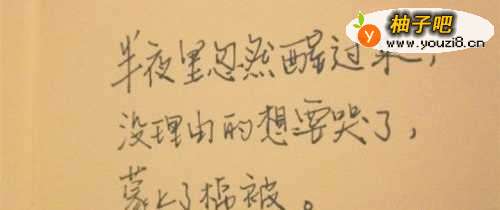 柚子吧
www.youzi8.cn
半夜里忽然醒过来,
没理由的想要哭了,
蒙上了棉被。